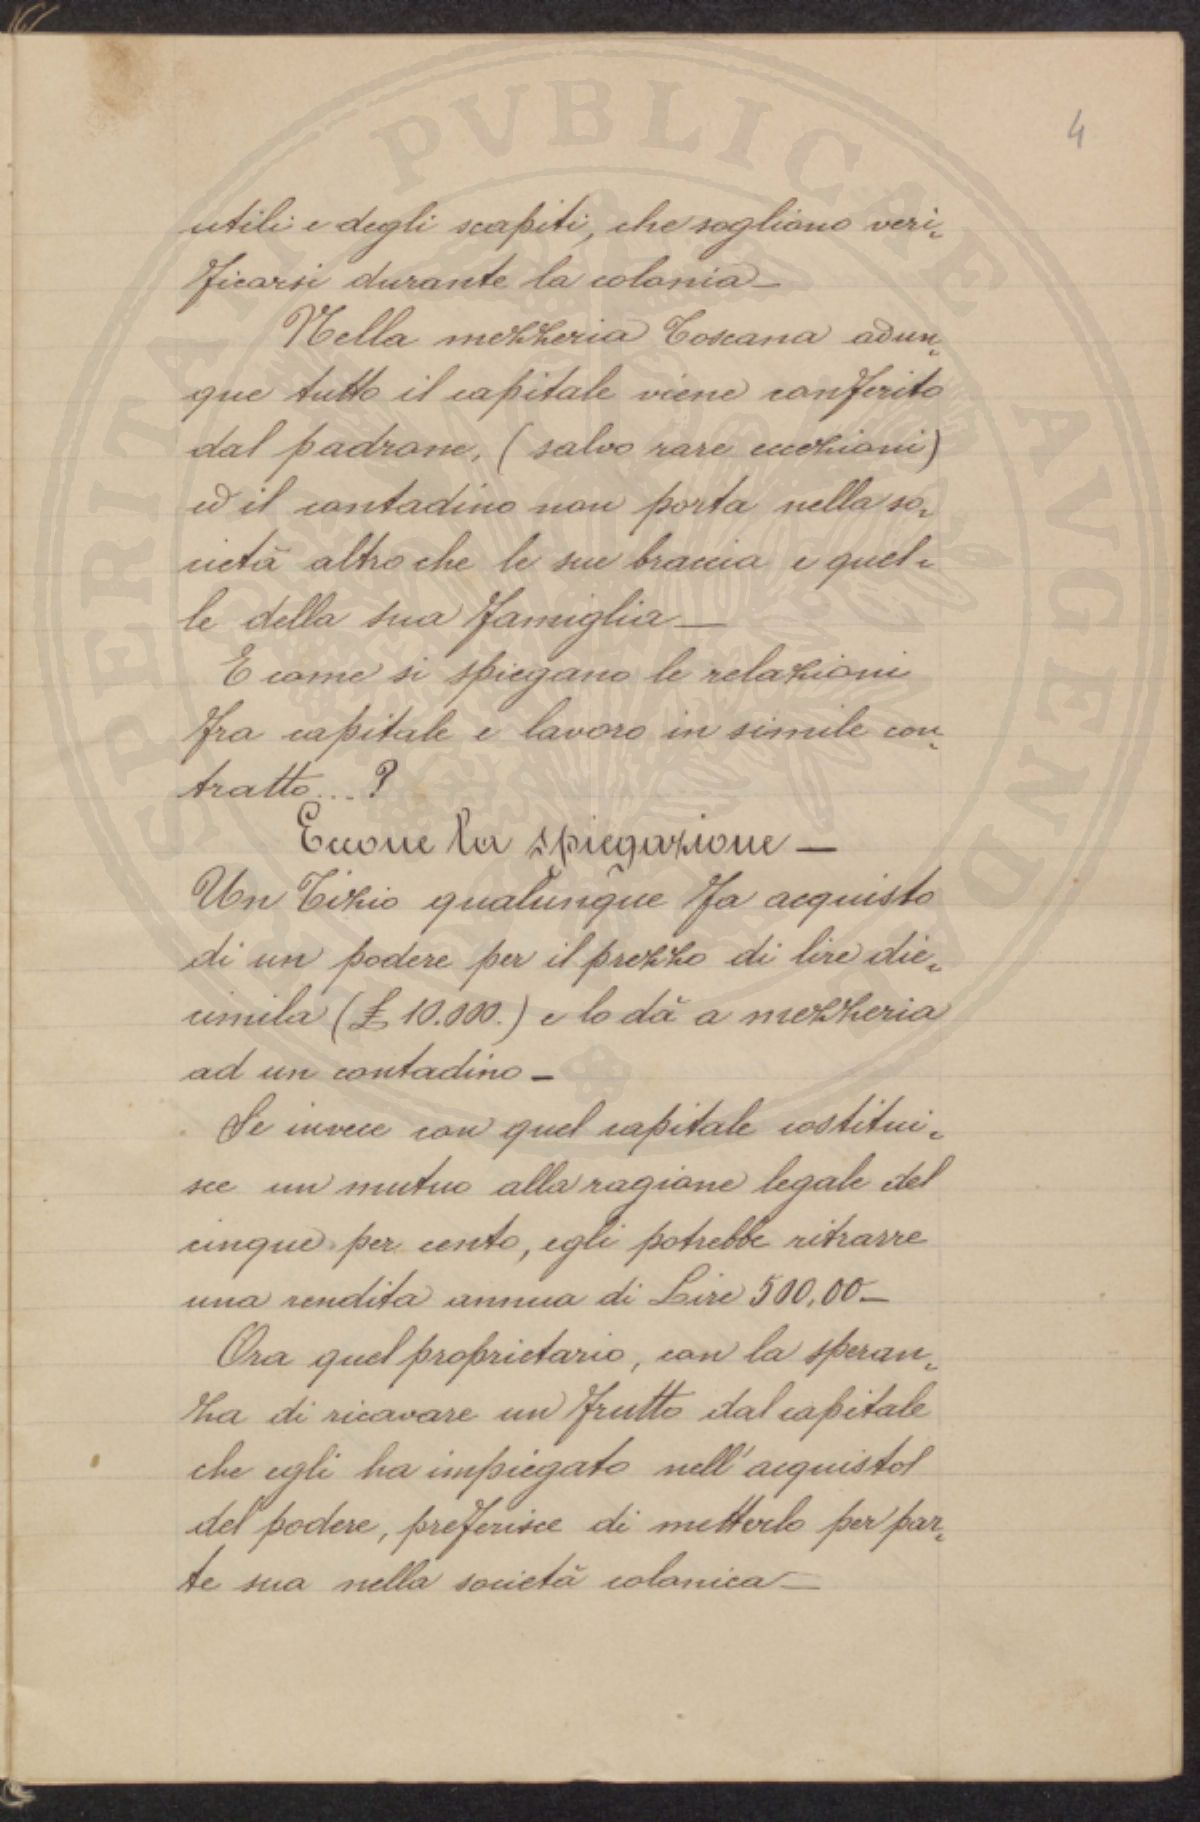 4
utili e degli scapiti, che sogliono veri-
ficarsi durante la colonia_
Nella mezzeria Toscana adun-
que tutto il capitale viene conferito
dal padrone, (salvo rare eccezioni)
ed il contadino non porta nella so-
cietà altro che le sue braccia e quel-
le della sua famiglia_
E come si spiegano le relazioni
fra capitale e lavoro in simile con-
tratto...?
Eccone la spiegazione_
Un Tizio qualunque fa acquisto
di un podere per il prezzo di lire die-
cimila (£ 10.000.) e lo dà a mezzeria
ad un contadino_
Se invece con quel capitale costitui-
sce un mutuo alla ragione legale del
cinque per cento, egli potrebbe ritrarre
una rendita annua di Lire 500,00_
Ora quel proprietario, con la speran-
za di ricavare un frutto dal capitale
che egli ha impiegato nell'acquisto
del podere, preferisce di metterlo per par-
te sua nella società colonica_
PVBLICAE AVGENDAE
PERITATI